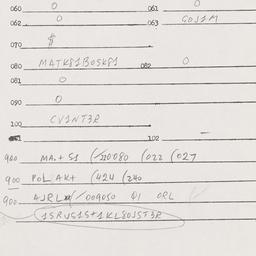 060 0 061 0
062 0 063 GOJ1M
070 $
080 MATK81BOSK81 082 0
081 0
090 0
100 CV1NT3R
102 -
900 MA.+ S1 (022 (027
900 POL AK+ (424 (240
900 AJRL 009050 01 ORL
1SRUS1S+1KL80JST3R